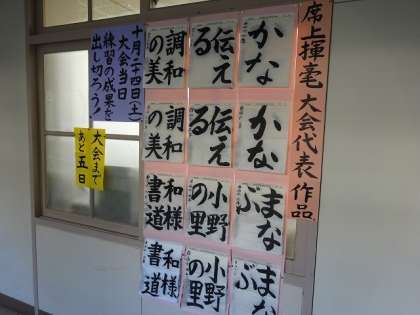 席上揮毫大会代表作品
かな
伝え
る
調和
の美
かな
伝え
る
調和
の美
まな
ぶ
小野
の里
和様
書道
まな
ぶ
小野
の里
和様
書道
十月二十四日(土)
大会当日
練習の成果を
出し切ろう!
大会まで
あと五日